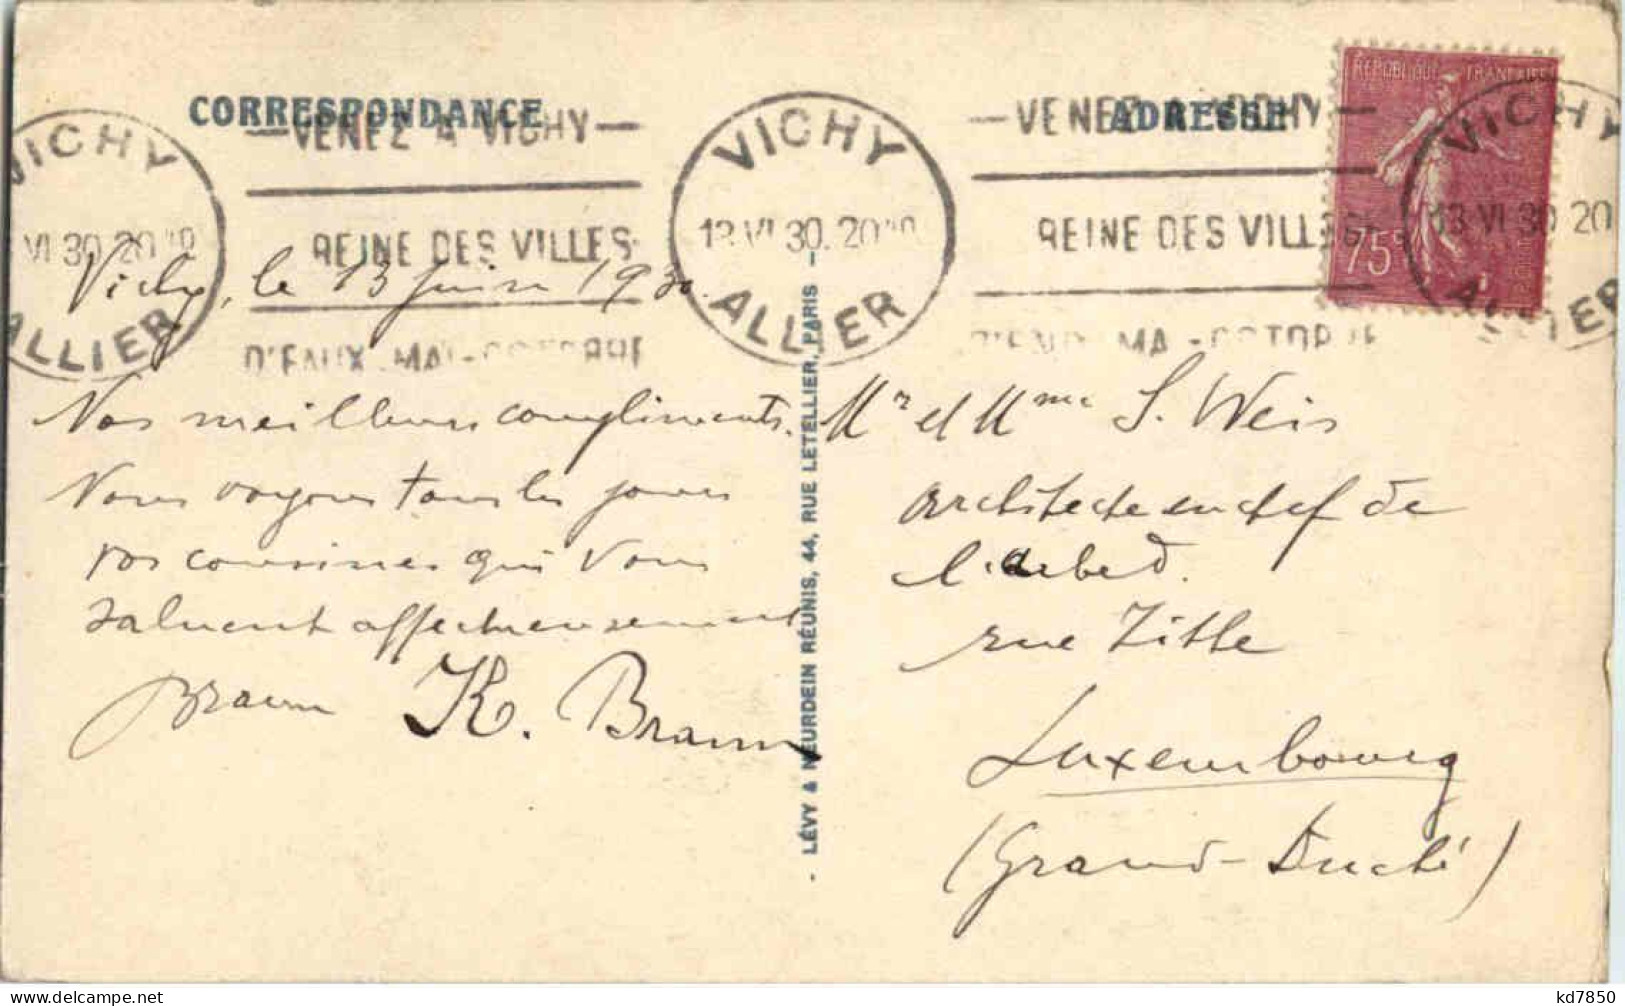 CORRESPONDANCE
ADRESSE
VICHY
VI 30 20
ALLIER
VENEZ A VICHY
REINE DES VILLES
D'EAUX MAI-OCTOBRE
VICHY
13 VI 30. 20
ALLIER
VENEZ A VICHY
REINE DES VILLES
D'EAUX MAI-OCTOBRE
REPUBLIQUE FRANÇAISE
75c
VICHY
13 VI 30 20
ALLIER
Vichy, le 13 juin 1930.
Nos meilleurs compliments.
Nous voyons tous les jours
vos cousines qui vous
saluent affectueusement
Braun K. Braun
- LÉVY & NEURDEIN RÉUNIS, 44, RUE LETELLIER, PARIS -
Mr et Mme S. Weis
architecte en chef de
l'arbed.
rue Zithe
Luxembourg
(Grand-Duché)
kd7850